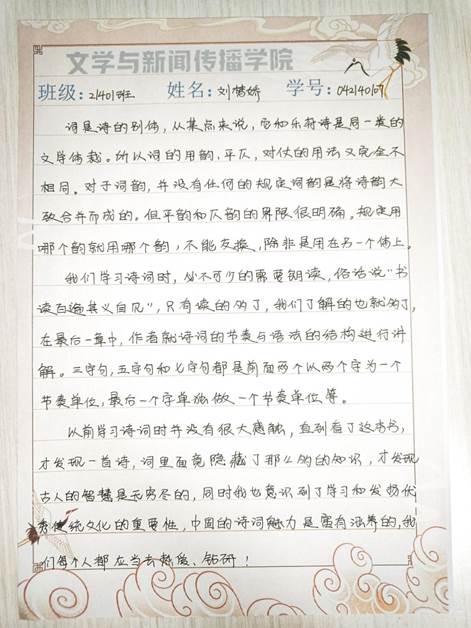 文学与新闻传播学院
班级：21401班 姓名：刘慧娇 学号：042140109
词是诗的别体，从某点来说，它和乐府诗是同一类的
文学体裁。所以词的用韵，平仄，对仗的用法又完全不
相同。对于词韵，并没有任何的规定词韵是将诗韵大
致合并而成的。但平韵和仄韵的界限很明确。规定用
哪个韵就用哪个韵，不能互换，除非是用在另一个体上。
我们学习诗词时，必不可少的需要朗读，俗话说“书
读百遍其义自见”，只有读的多了，我们了解的也就多了，
在最后一章中，作者就诗词的节奏与语法的结构进行讲
解。三字句，五字句和七字句都是前面两个以两个字为一个
节奏单位，最后一个字单独做一个节奏单位等。
以前学习诗词时并没有很大感触，直到看了这本书，
才发现一首诗，词里面竟隐藏了那么多的知识，才发现
古人的智慧是无穷尽的，同时我也意识到了学习和发扬优
秀传统文化的重要性，中国的诗词魅力是富有涵养的，我
们每个人都应当去热爱、钻研！